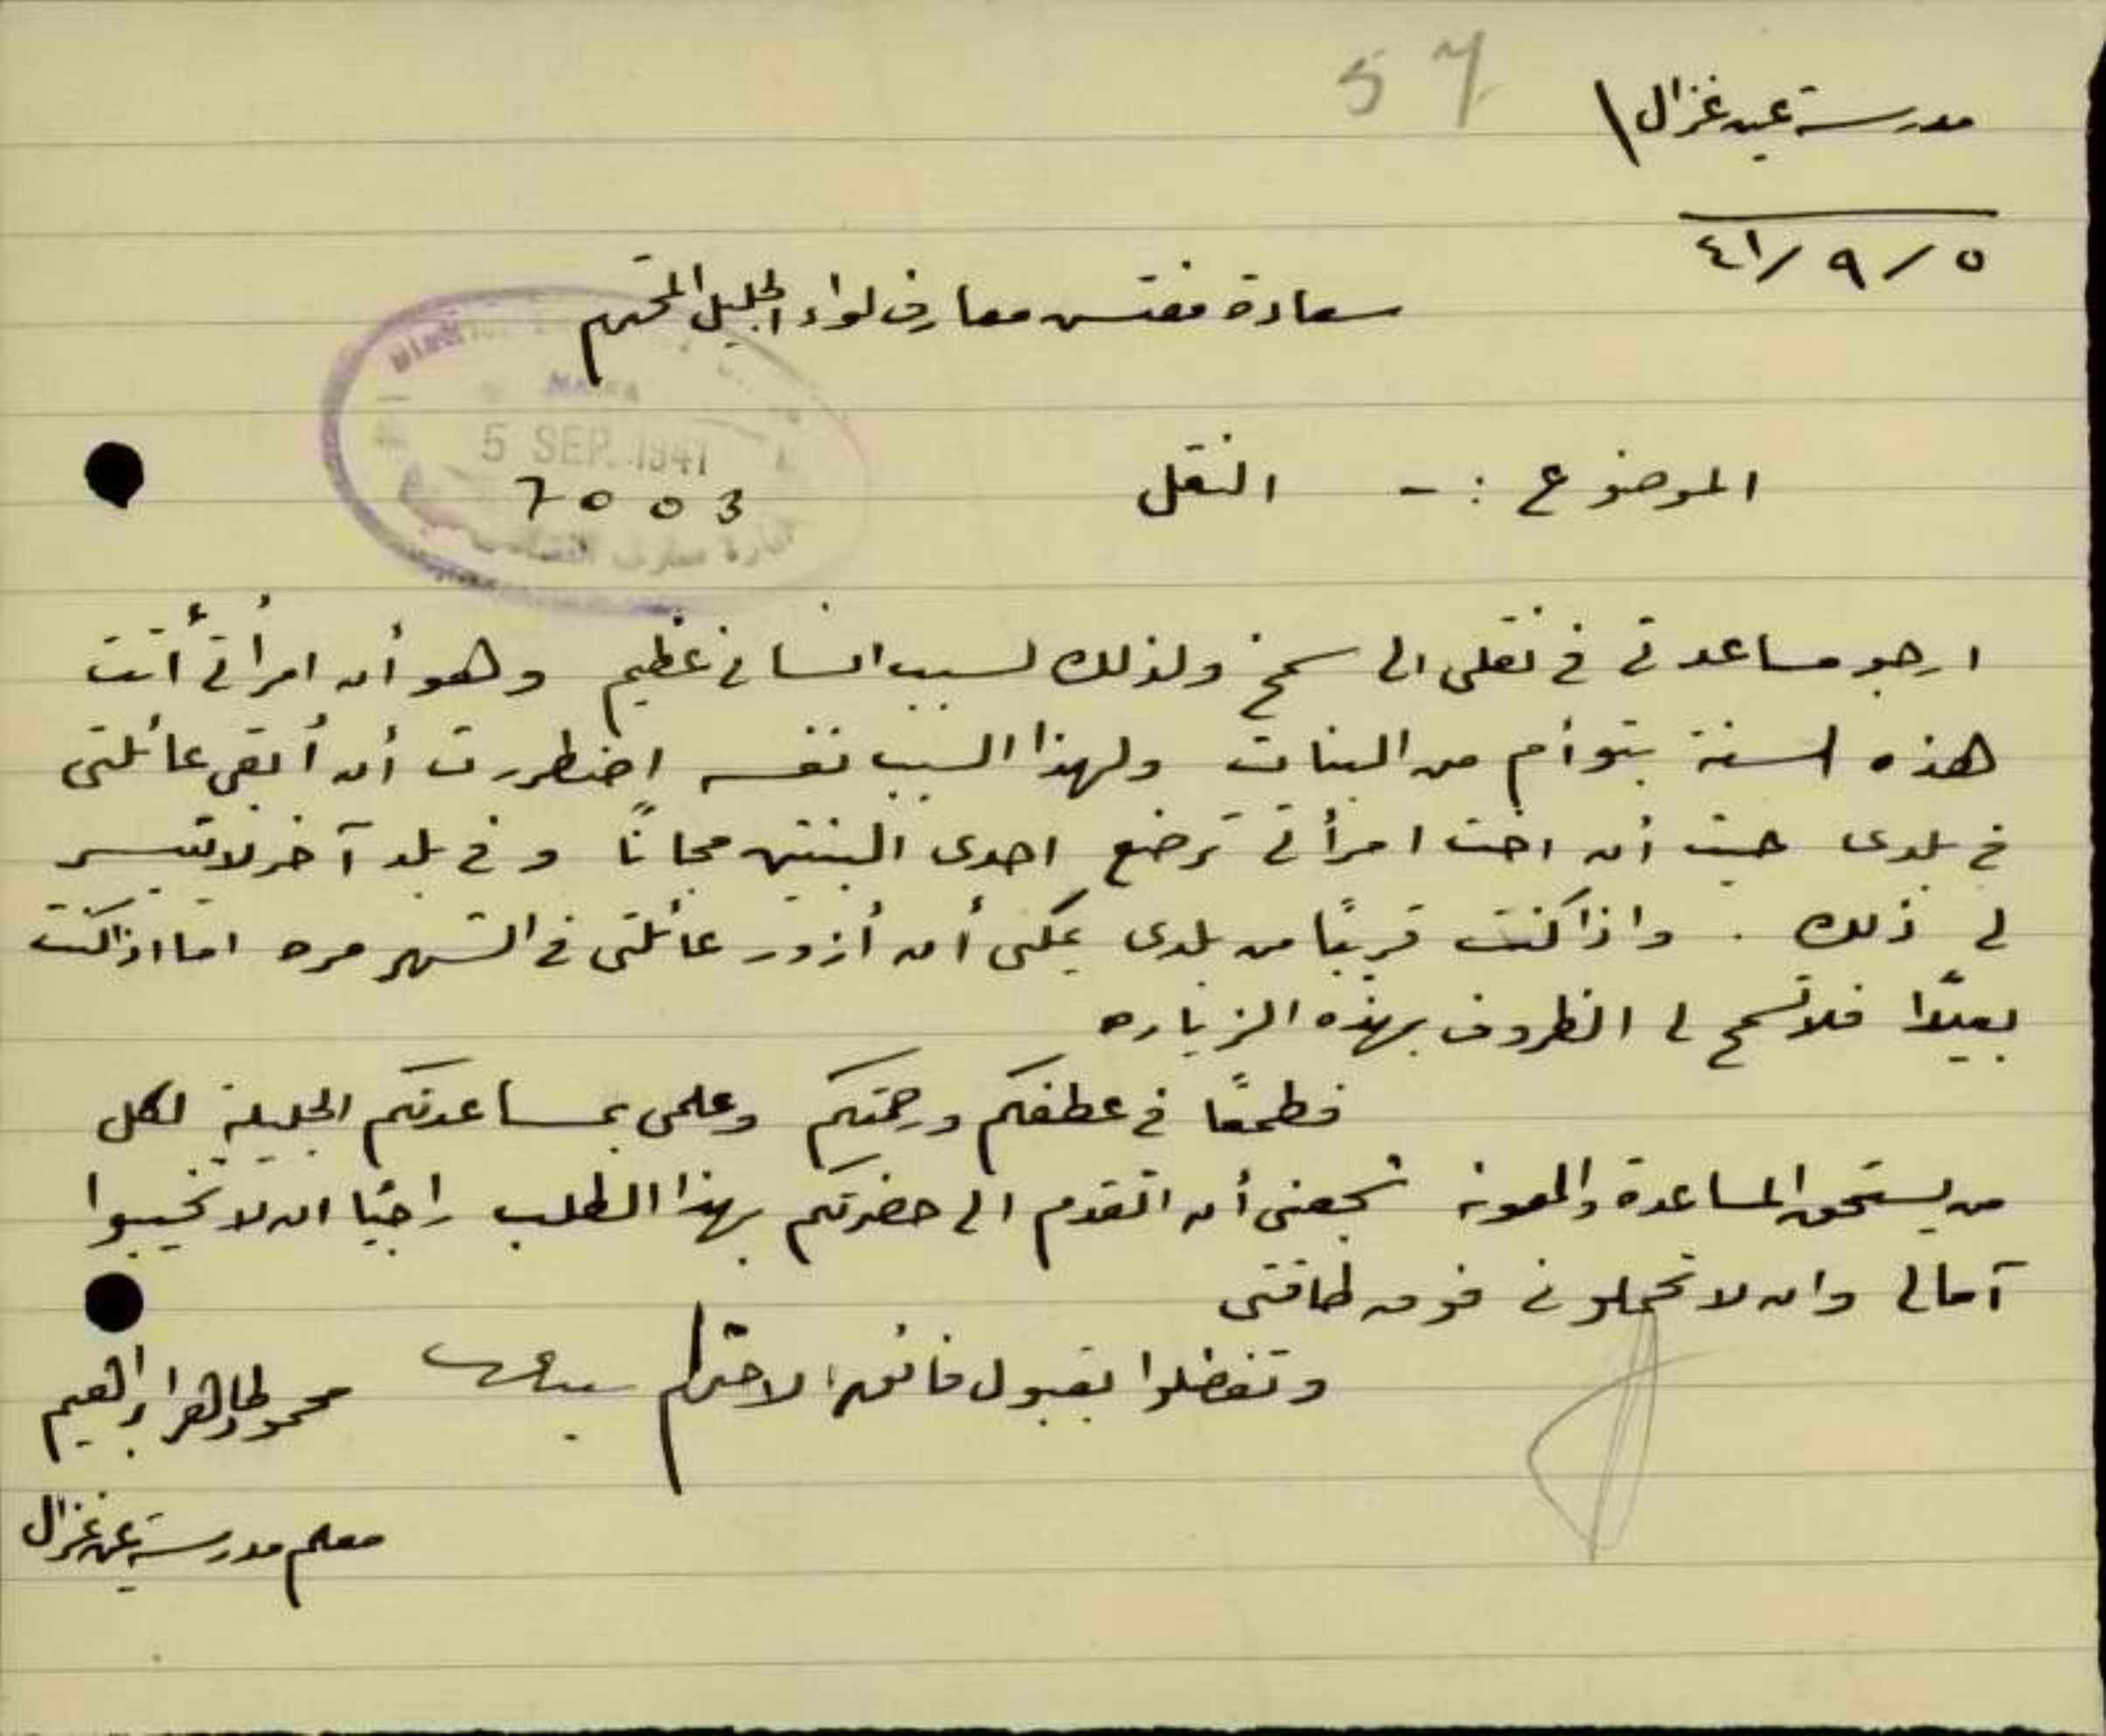 57
مدرسة عين غزال \
٥ / ٩ / ٤١
سعادة مفتش معارف لواء الجليل المحترم
HAIFA
5 SEP. 1941
7003
ادارة معارف
الموضوع :- النقل
ارجو مساعدتي في نقلي الى سمخ ولذلك لسبب انساني عظيم وهو أن امرأتي أتت
هذه السنة بتوأم من البنات ولهذا السبب نفسه اضطررت أن أبقي عائلتي
في بلدي حيث أن اخت امرأتي ترضع احدى البنتين مجاناً وفي بلد آخر لا يتيسر
لي ذلك . واذا كنت قريباً من بلدي يمكنني أن أزور عائلتي في الشهر مره اما اذا كنت
بعيداً فلا تسمح لي الظروف بهذه الزياره
فطمعاً في عطفكم ورحمتكم وعلمي بمساعدتكم الجليلة لكل
من يستحق المساعدة والمعونه شجعني أن اتقدم الى حضرتكم بهذا الطلب راجياً ان لا تخيبوا
آمالي وان لا تحملوني فوق طاقتي
وتفضلوا بقبول فائق الاحترام سيدي
محمود طاهر ابراهيم
معلم مدرسة عين غزال